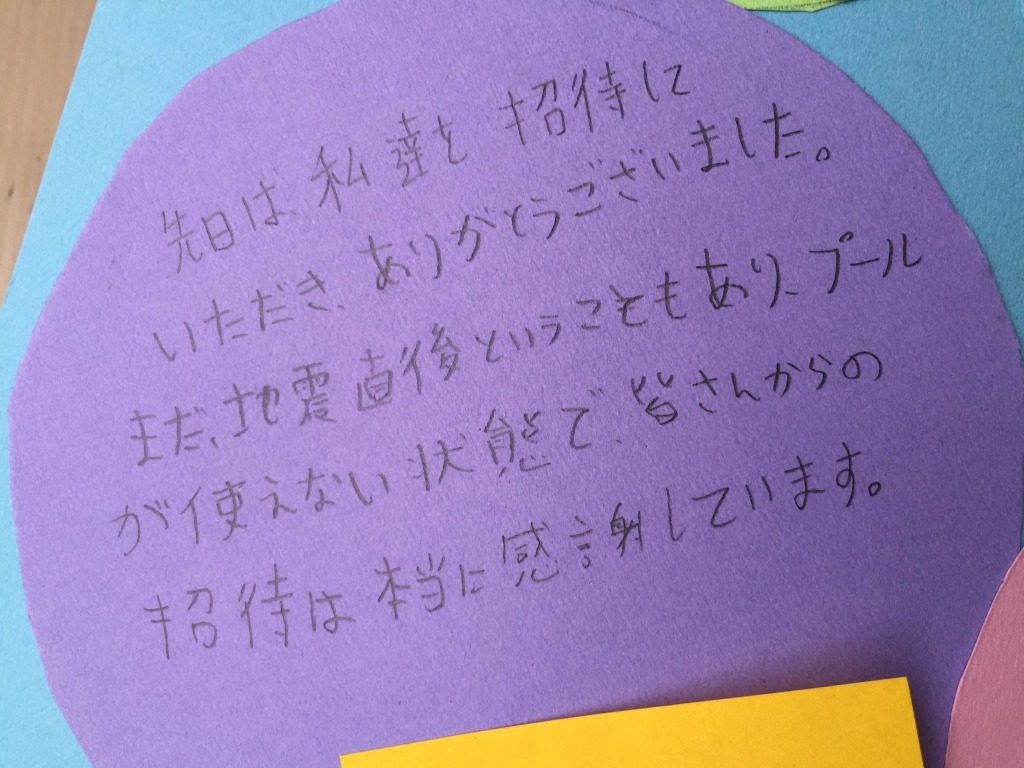 先日は、私達を招待して
いただき、ありがとうございました。
まだ、地震直後ということもあり、プール
が使えない状態で、皆さんからの
招待は本当に感謝しています。